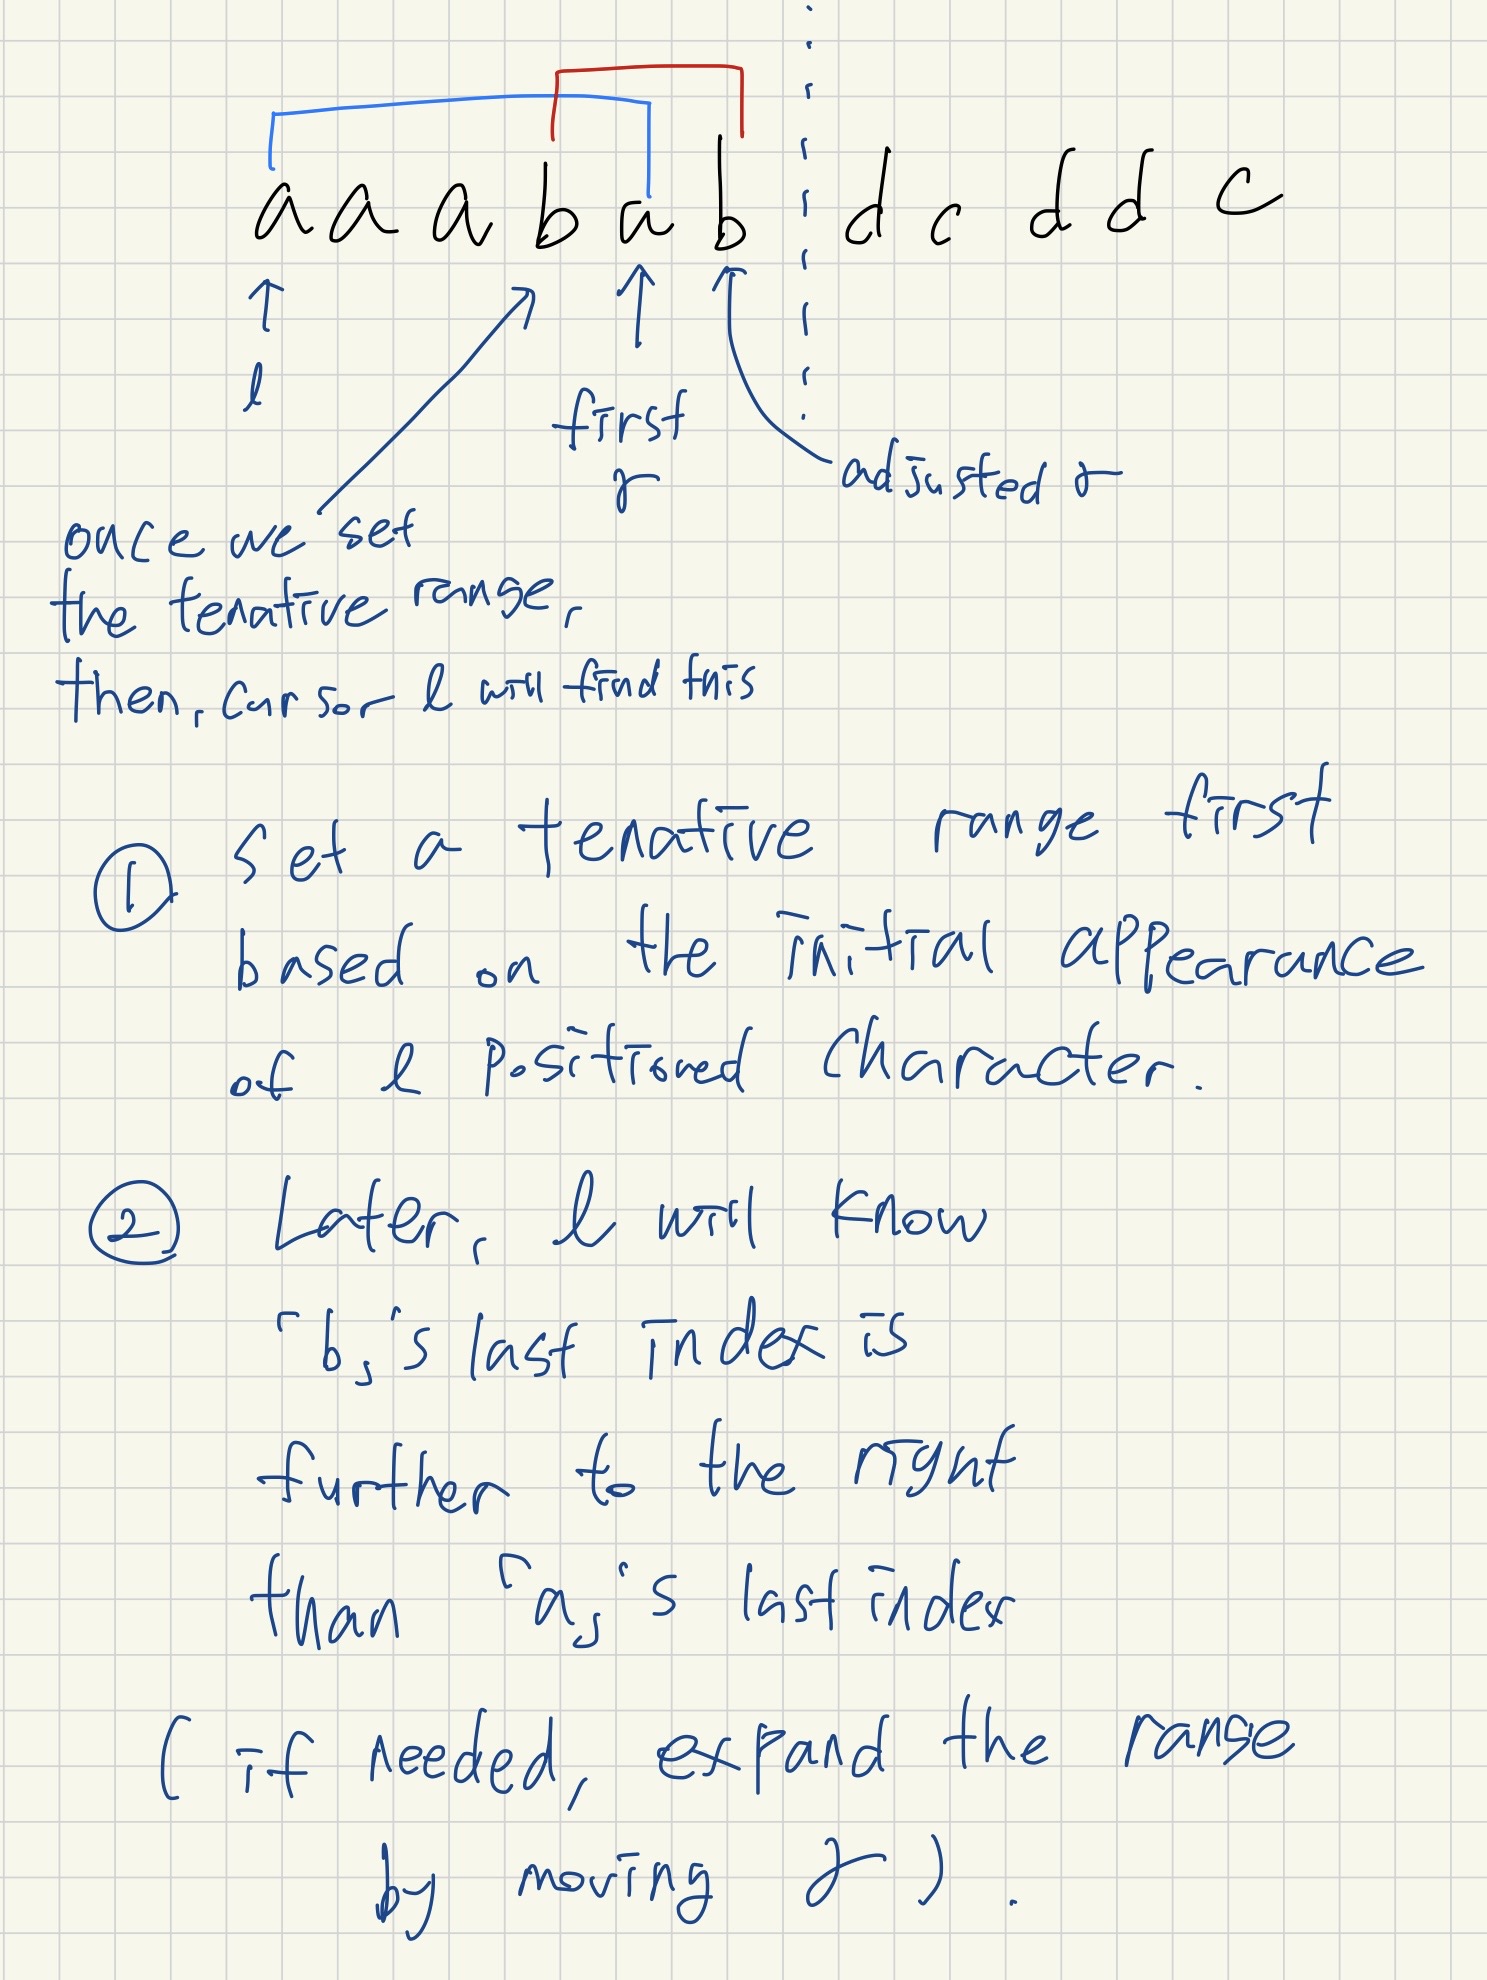 a a a b a b d c d d c
l
first
r
adjusted r
once we set
the tenative range,
then, cursor l will find this
① set a tenative range first
based on the initial appearance
of l positioned character.
② Later, l will know
「b」's last index is
further to the right
than 「a」's last index
( if needed, expand the range
by moving r ).